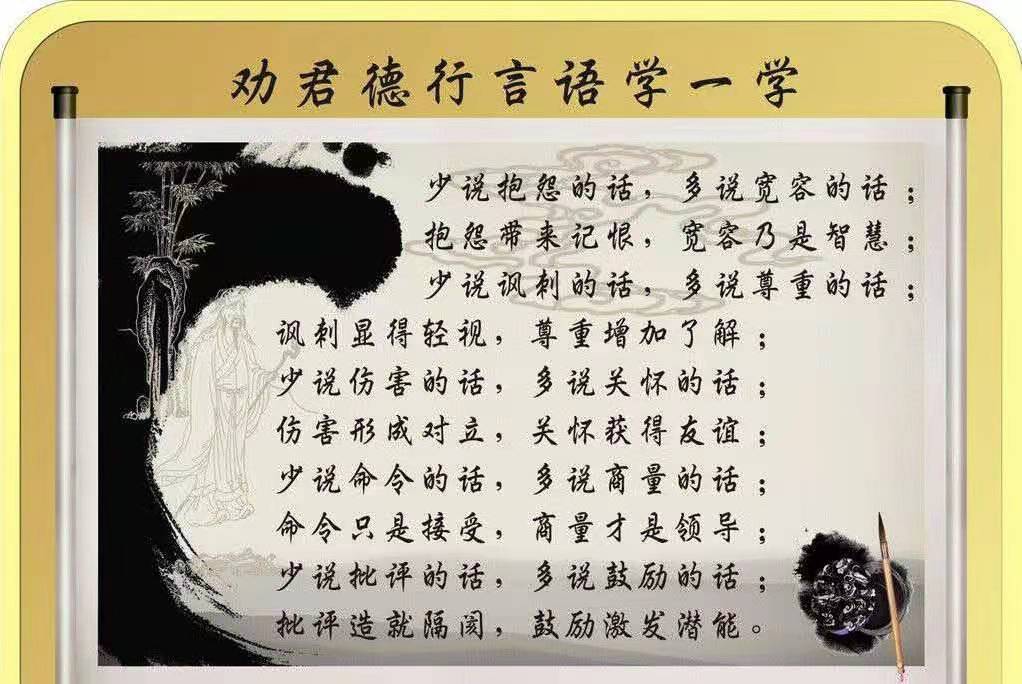 劝君德行言语学一学
少说抱怨的话，多说宽容的话；
抱怨带来记恨，宽容乃是智慧；
少说讽刺的话，多说尊重的话；
讽刺显得轻视，尊重增加了解；
少说伤害的话，多说关怀的话；
伤害形成对立，关怀获得友谊；
少说命令的话，多说商量的话；
命令只是接受，商量才是领导；
少说批评的话，多说鼓励的话；
批评造就隔阂，鼓励激发潜能。